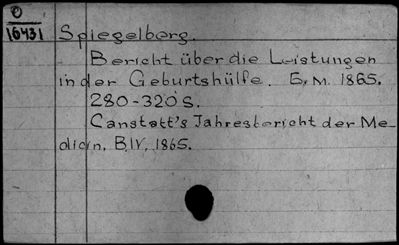 O
16431 Spiegelberg.
Bericht über die Leistungen
in der Geburtshülfe. E, M. 1865.
280-320 S.
Canstatt's Jahresbericht der Me-
dicin, B.IV, 1865.